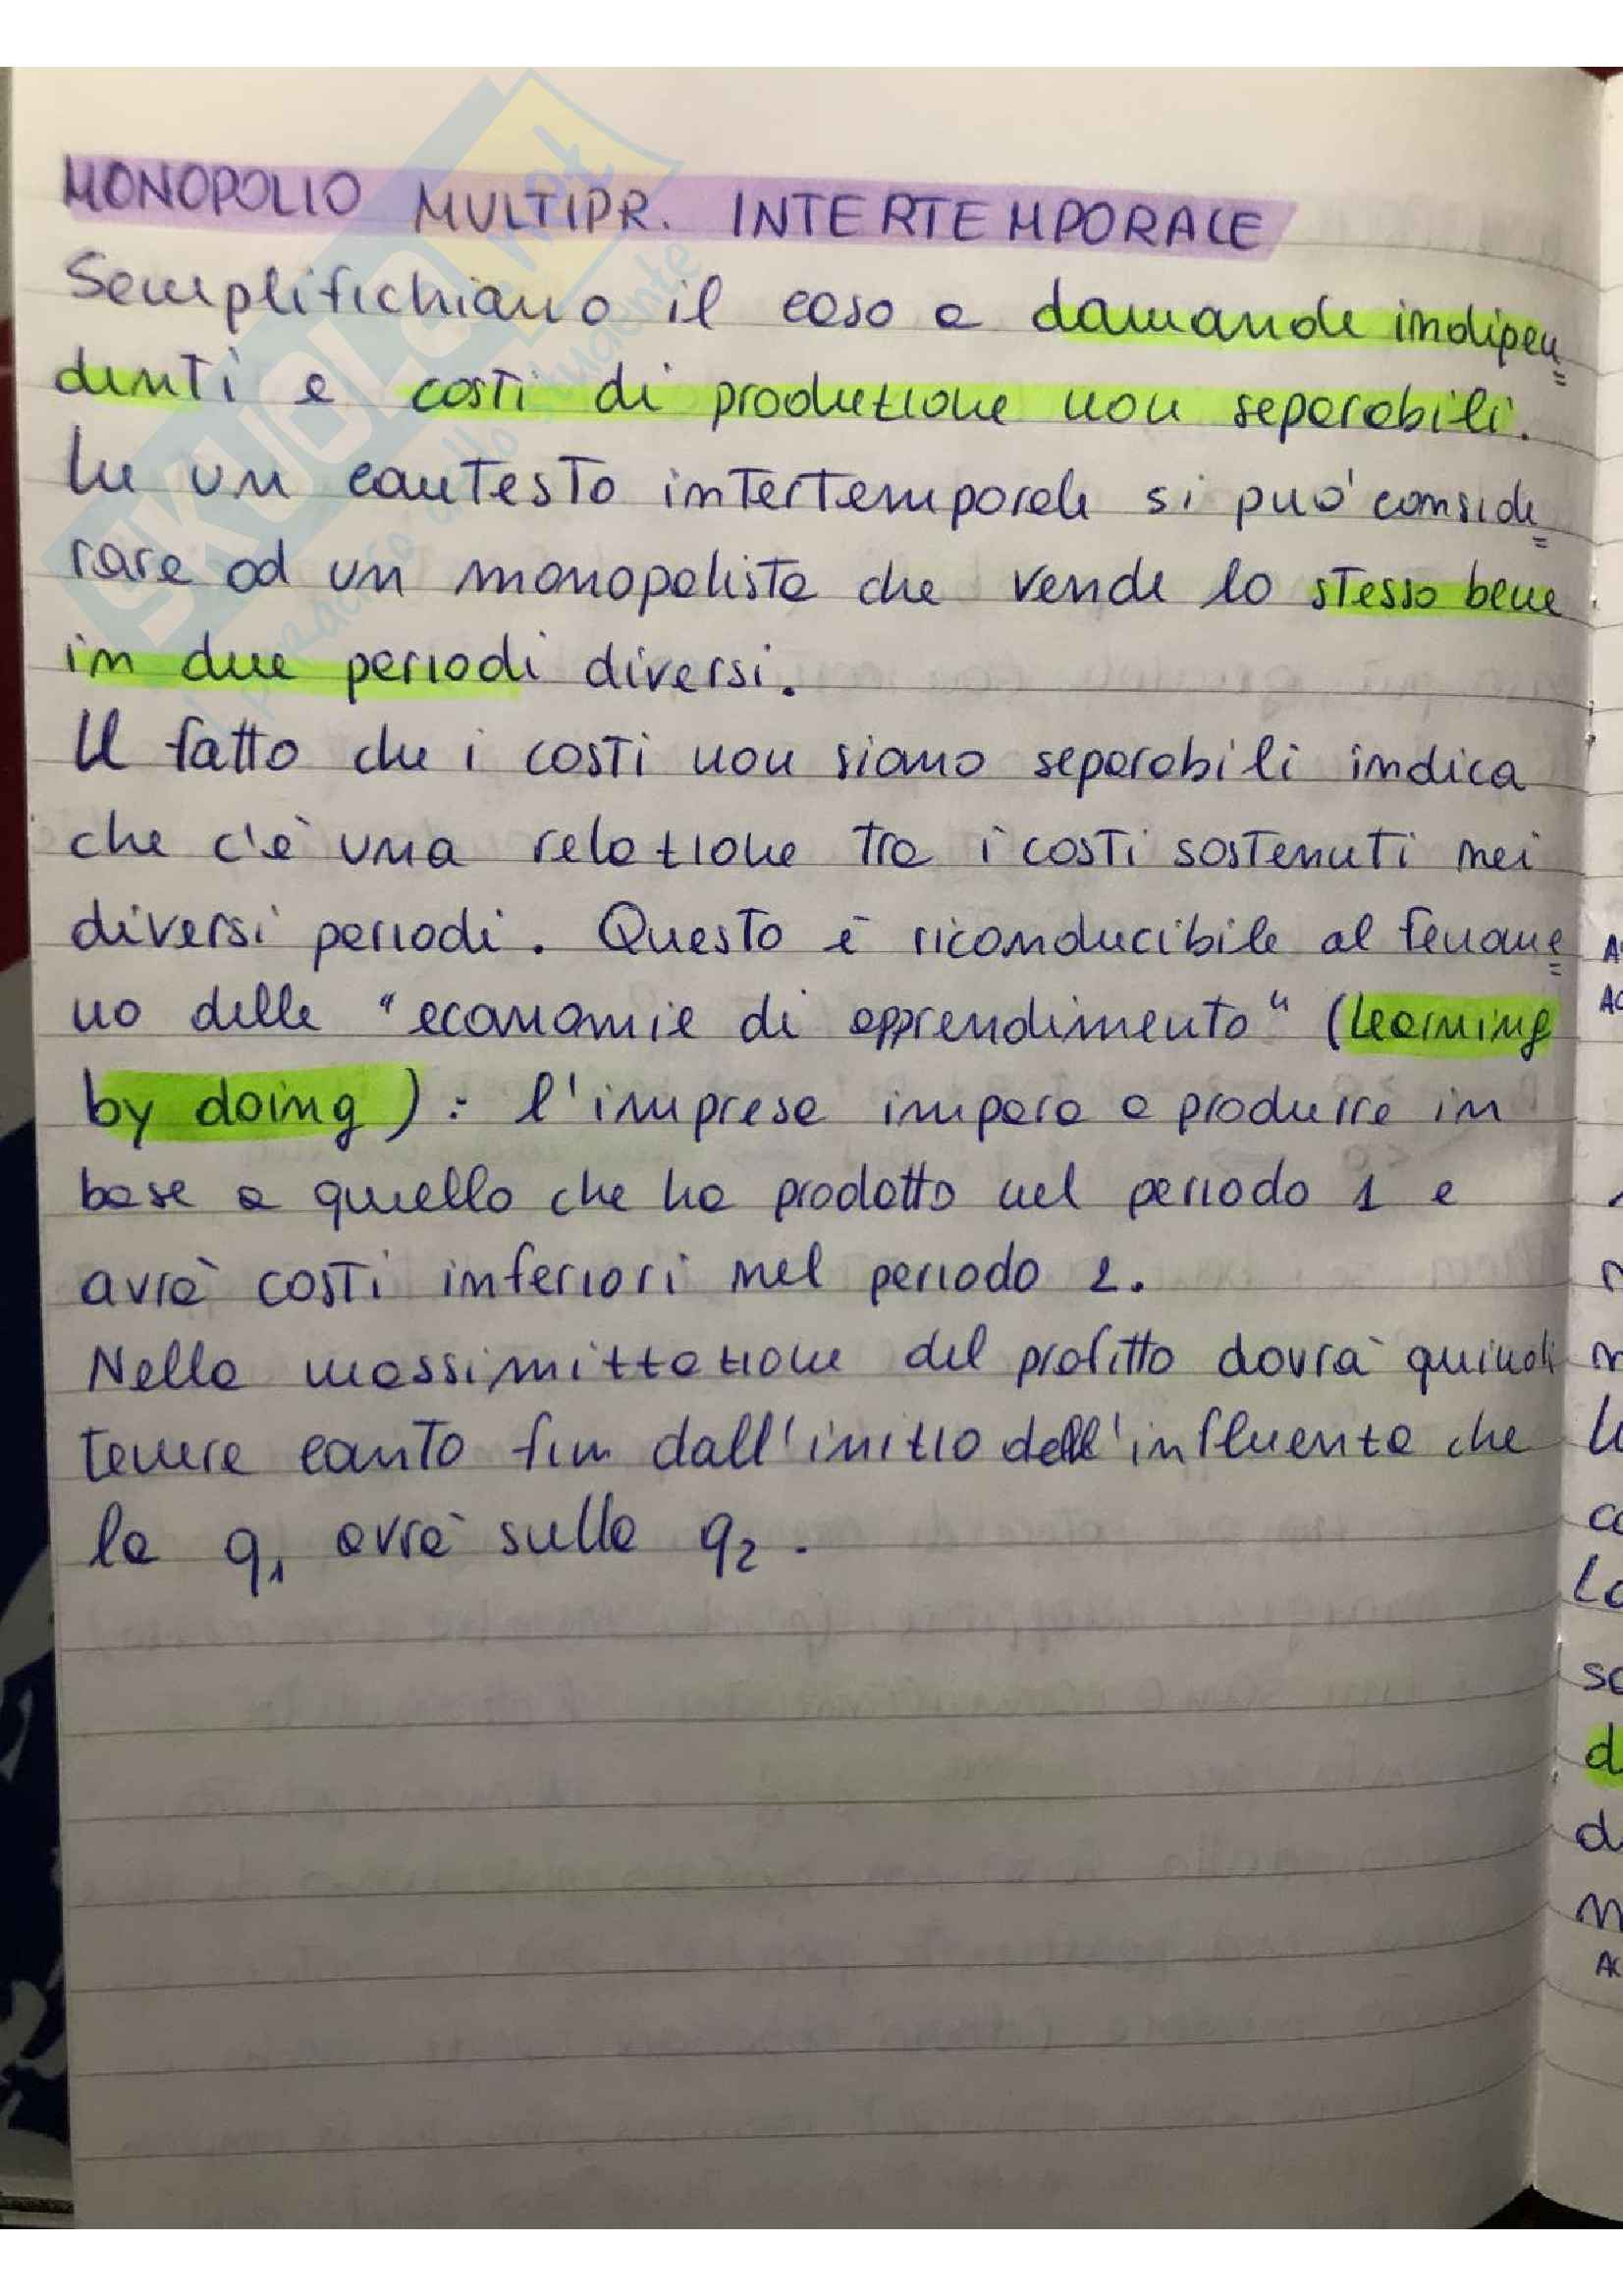 MONOPOLIO MULTIPR. INTERTEMPORALE
Semplifichiamo il caso a domande indipen
denti e costi di produzione non separabili.
In un contesto intertemporale si può conside
rare ad un monopolista che vende lo stesso bene
in due periodi diversi.
Il fatto che i costi non siano separabili indica
che c'è una relazione tra i costi sostenuti nei
diversi periodi. Questo è riconducibile al fenome
no delle "economie di apprendimento" (learning
by doing): l'impresa impara a produrre in
base a quello che ha prodotto nel periodo 1 e
avrà costi inferiori nel periodo 2.
Nella massimizzazione del profitto dovrà quindi
tenere conto fin dall'inizio dell'influenza che
la q1 avrà sulla q2.
SKUOLA.net